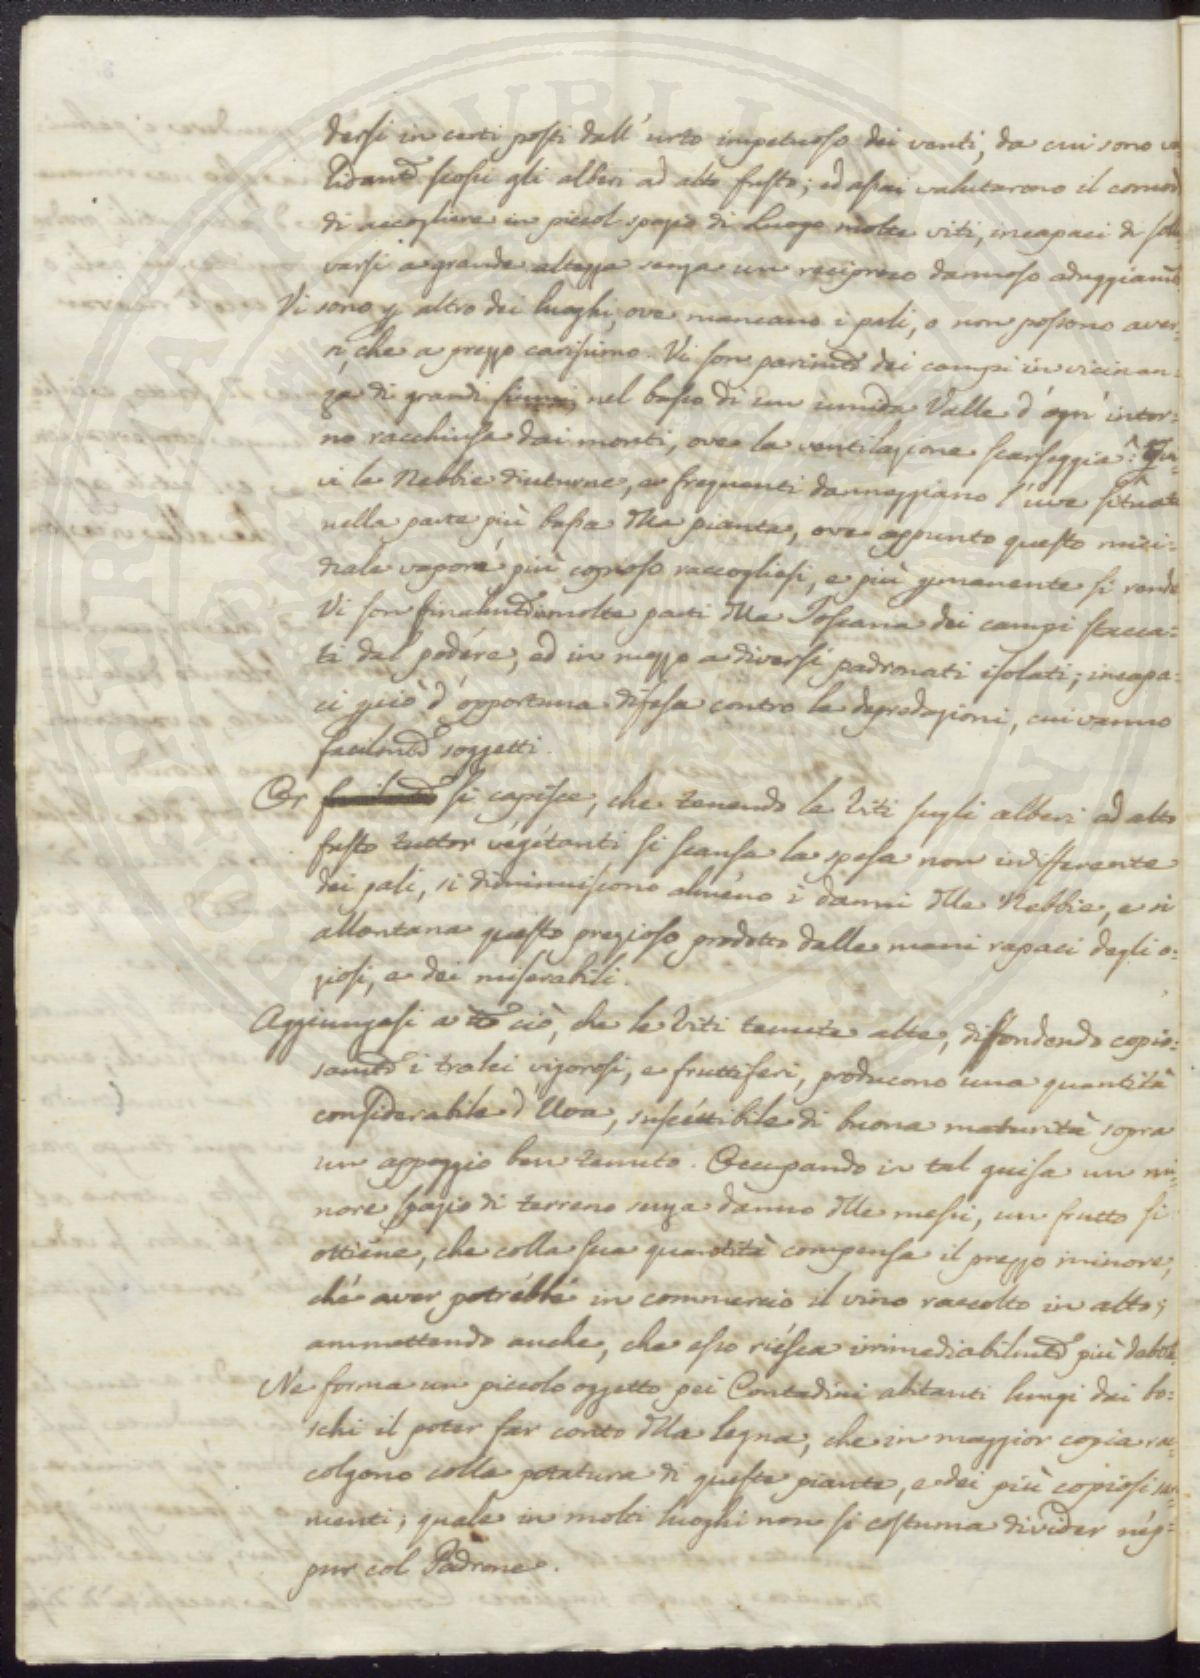 dersi in certi posti dall' urto impetuoso dei venti, da cui sono va-
lidam.te scossi gli alberi ad alto fusto; ed assai valutarono il comodo
di accogliere in piccol spazio di luogo molte viti, incapaci di solle
varsi a grande altezza senza un reciproco dannoso aduggiam.to
Vi sono p altro dei luoghi, ove mancano i pali, o non possono aver-
si, che a prezzo carissimo. Vi son parim.te dei campi in vicinan-
za di grandi fiumi, nel basso di un umida Valle d' ogn' intor-
no racchiusa dai monti, ove la ventilazione scarseggia: Qui-
vi le Nebbie diuturne, e frequenti danneggiano l' uve situate
nella parte più bassa dlla pianta, ove appunto questo mici-
diale vapore più copioso raccogliesi, e più pmanente si rende
Vi son finalm.te in molte parti dlla Toscana dei campi stacca-
ti dal podére, ed in mezzo a diversi padronati isolati; incapa-
ci pciò d' opportuna difesa contro le depredazioni, cui vanno
facilm.te soggetti.
Or si capisce, che tenendo le Viti sugli alberi ad alto
fusto tuttor végétanti, si scansa la spesa non indifferente
dei pali, si diminuiscono alméno i danni dlle Nebbie, e si
allontana questo prezioso prodotto dalle mani rapaci degli o-
ziosi, e dei miserabili.
Aggiungasi a tto ciò, che le Viti tenute alte, diffondendo copio-
sam.te i tralci vigorosi, e fruttiferi, producono una quantità
considerabile d' Uva, suscéttibile di buona maturità sopra
un appoggio ben tenuto. Occupando in tal guisa un mi-
nore spazio di terreno senza danno dlle messi, un frutto si
ottiéne, che colla sua quantità compensa il prezzo minore,
ché aver potrébbé in commercio il vino raccolto in alto;
ammettendo anche, che esso riésca irrimediabilm.te più debole.
Ne forma un piccolo oggetto pei Contadini abitanti lungi dai bo-
schi il poter far conto dlla legna, che in maggior copia rac-
colgono colla potatura di queste piante, e dei più copiosi sar-
menti; quale in molti luoghi non si costuma divider nép-
pur col Padrone.